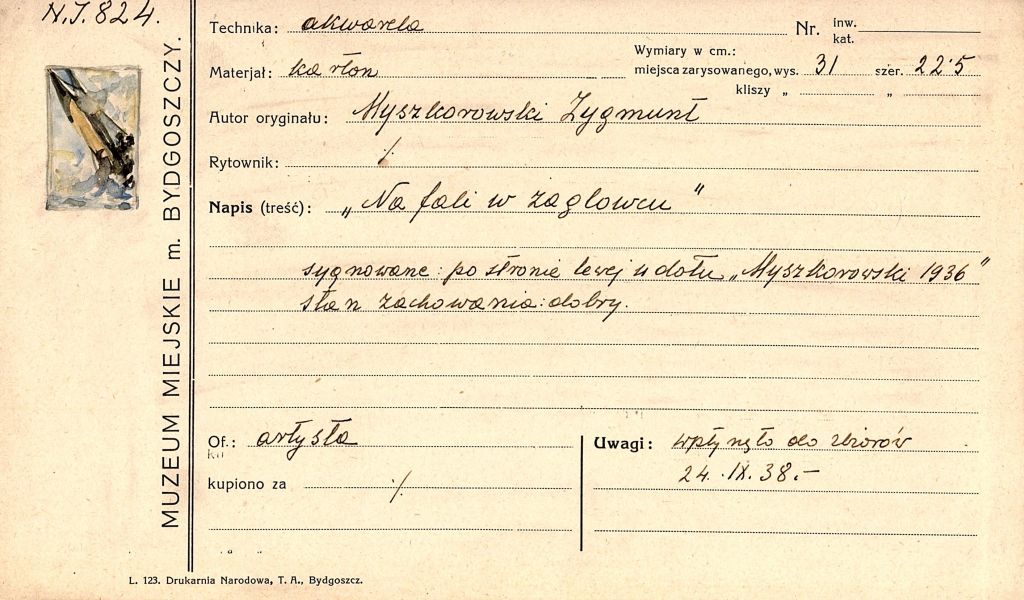 N.I. 824.
MUZEUM MIEJSKIE m. BYDGOSZCZY.
Technika: akwarela
Nr. inw.
kat.
Materjał: karton
Wymiary w cm.:
miejsca zarysowanego, wys. 31 szer. 22·5
kliszy „ „
Autor oryginału: Myszkorowski Zygmunt
Rytownik: ·/.
Napis (treść): „Na fali w żaglowcu"
sygnowane: po stronie lewej u dołu „Myszkorowski 1936"
stan zachowania: dobry.
Of.: artysta
kupiono za ·/.
Uwagi: wpłynęło do zbiorów
24. IX. 38.-
L. 123. Drukarnia Narodowa, T. A., Bydgoszcz.